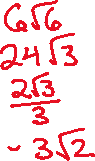 6√6
24√3
2√3/3
-3√2